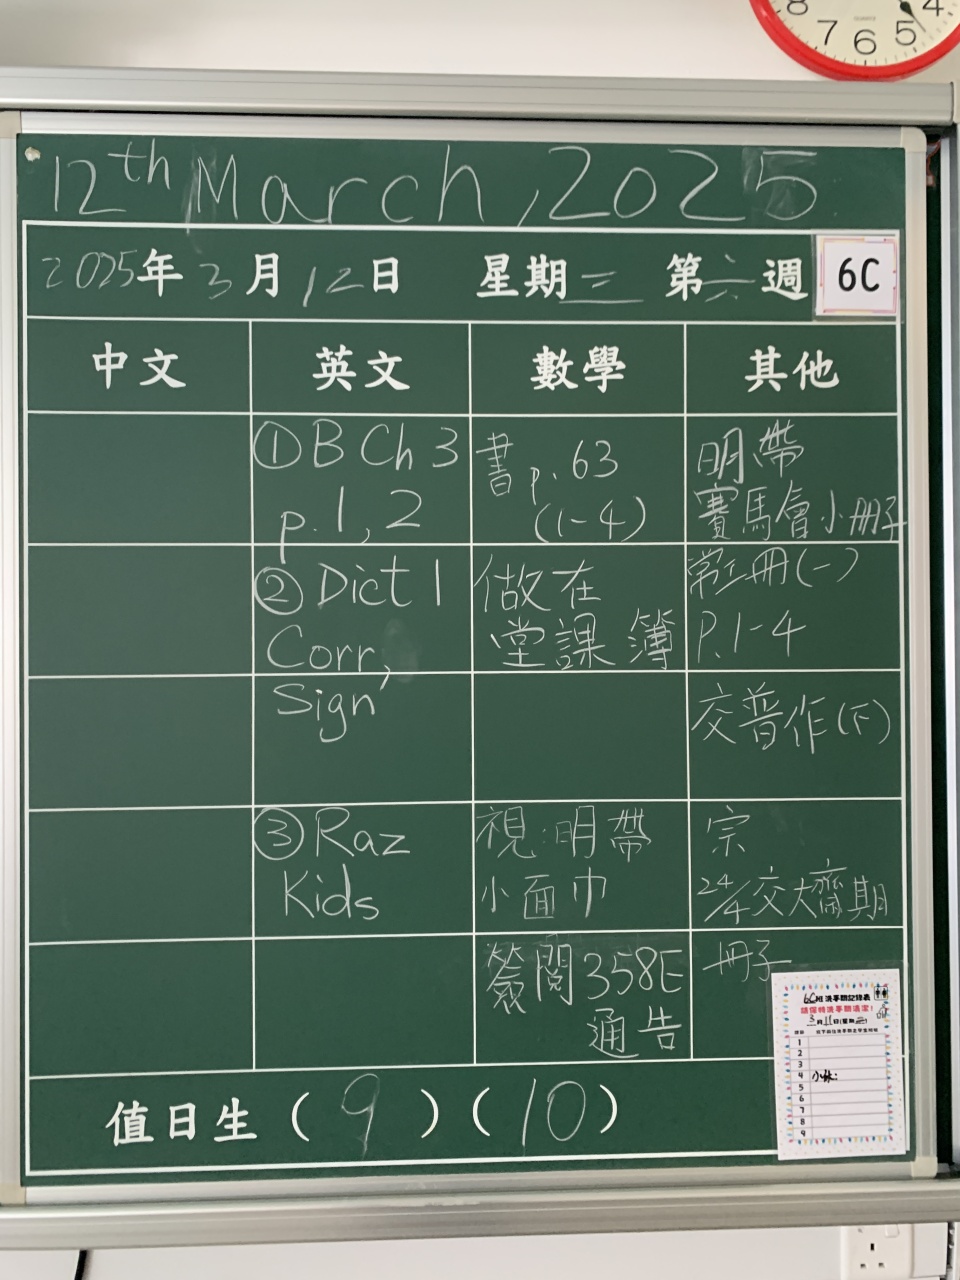 8 7 6 5 4
12th March, 2025
2025年3月12日 星期三 第六週 6C
中文 英文 數學 其他
① B Ch 3
p. 1, 2
② Dict 1
Corr,
Sign
③ Raz
Kids
書 p. 63
(1-4)
做在
堂課簿
視:明帶
小面巾
簽閱358E
通告
明帶
賽馬會小冊子
冊(一)
P.1-4
交普作(下)
宗
24/4交大齋期
冊子
6C班洗手間記錄表
請保持洗手間清潔!
3月11日(星期二)
1
2
3
4 小林:
5
6
7
8
9
值日生(9)(10)